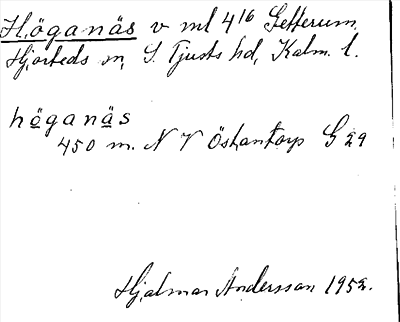 Höganäs v ml 4¹⁶ Getterum,
Hjorteds sn, S. Tjusts hd, Kalm. l.
höganäs
450 m. N V Östantorp G 29
Hjalmar Andersson 1952.